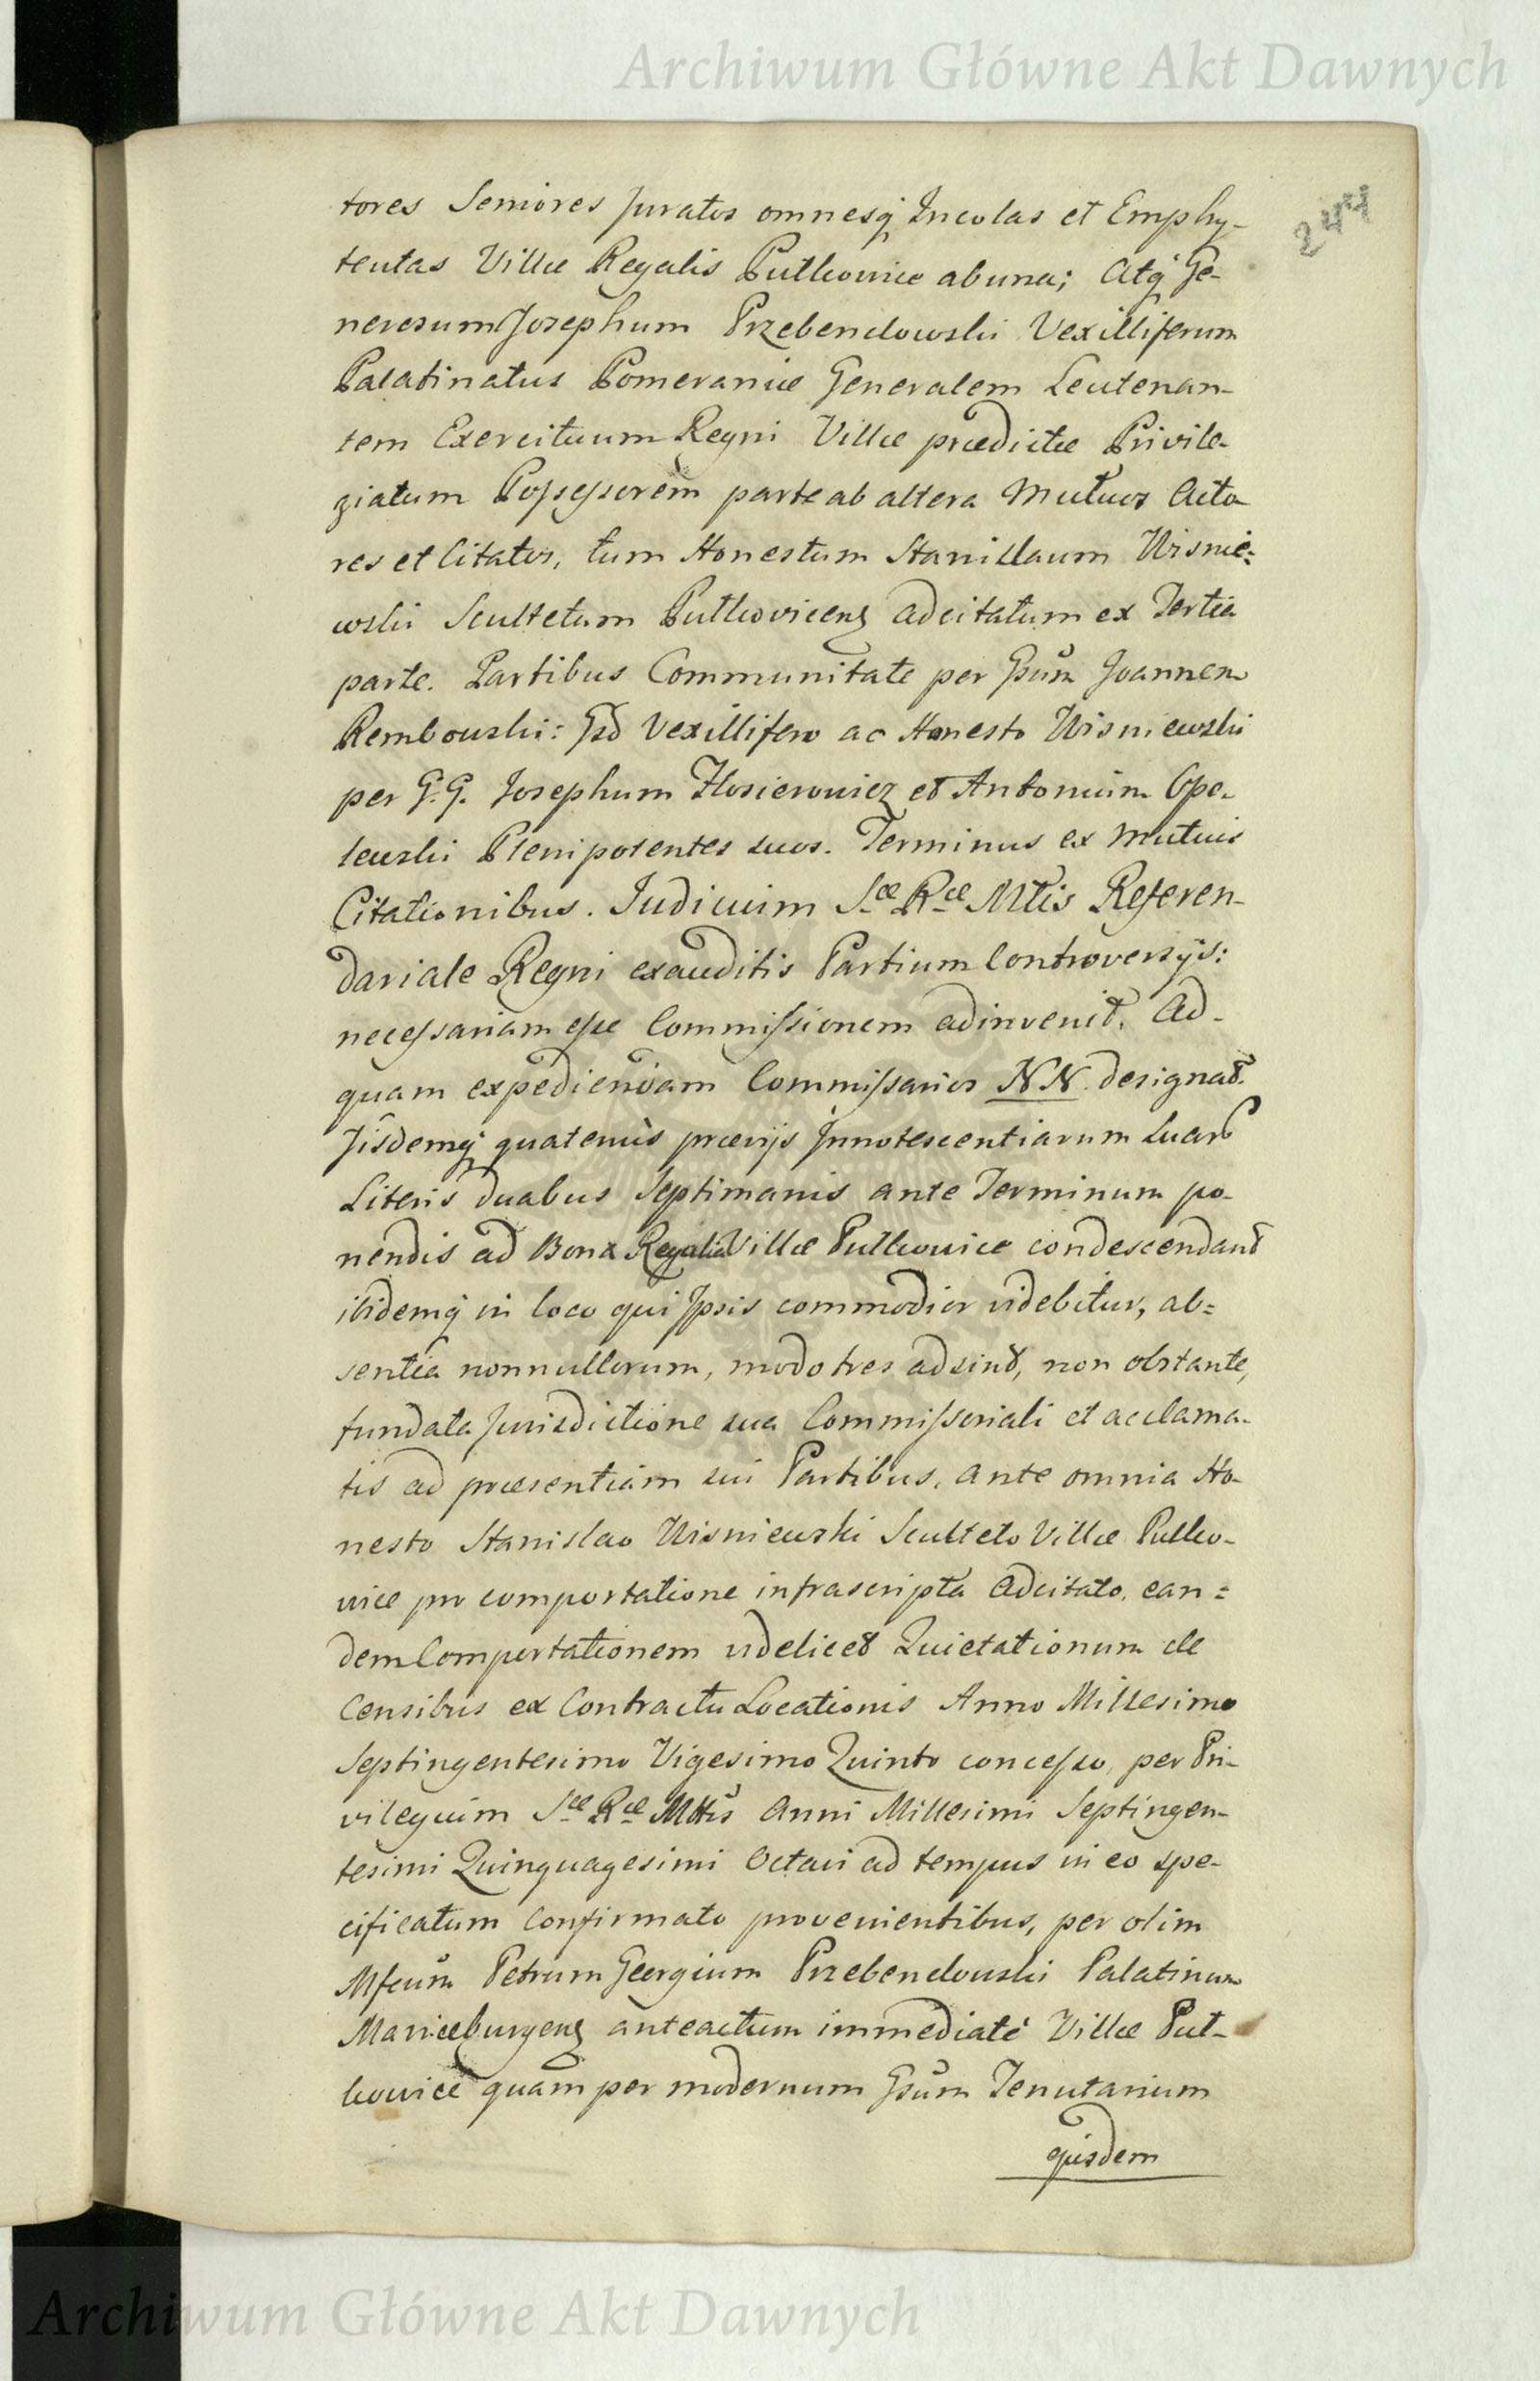 Archiwum Główne Akt Dawnych
244
tores Seniores Juratos omnesq Incolas et Emphy-
teutas Villæ Regalis Putkowice ab una; Atq Ge-
nerosum Josephum Przebendowski Vexilliferum
Palatinatus Pomeraniæ Generalem Leutenan-
tem Exercituum Regni Villæ prædictæ Privile-
giatum Possessorem parte ab altera Mutuos Acto
res et Citatos, tum Honestum Stanislaum Wisnie-
wski Scultetum Putkovicens adcitatum ex Tertia
parte. Partibus Communitate per Gsum Joannem
Rembowski: Gsd Vexillifero ac Honesto Wisniewski
per G.G. Josephum Klosierowicz et Antonium Opa-
lewski Plenipotentes suos. Terminus ex Mutuis
Citationibus. Judicium Sæ Ræ Mtis Referen-
dariale Regni exauditis Partium Controversijs:
necessariam esse Commissionem adinvenit. Ad-
quam expediendam Commissarios NN. designat.
Jisdemq quatenus prævijs Innotescentiarum suar
Literis duabus Septimanis ante Terminum po-
nendis ad Bona Regalia Villæ Putkowice condescendant
ibidemq in loco qui Ipsis commodior videbitur, ab=
sentia nonnullorum, modo tres adsint, non obstante,
fundata Jurisdictione sua Commissoriali et acclama-
tis ad præsentiam sui Partibus, ante omnia Ho-
nesto Stanislao Wisniewski Sculteto Villæ Putko-
wice pro comportatione infrascripta Adcitato, ean=
dem Comportationem videlicet Quietationum de
Censibus ex Contractu Locationis Anno Millesimo
Septingentesimo Vigesimo Quinto concesso, per Pri-
vilegium Sæ Ræ Mttis Anni Millesimi Septingen-
tesimi Quinquagesimi Octavi ad tempus in eo spe-
cificatum Confirmato provenientibus, per olim
Mfcum Petrum Georgium Przebendowski Palatinum
Mariæburgens anteactum immediatè Villæ Put-
kowice quam per modernum Gsum Tenutarium
ejusdem
Archiwum Główne Akt Dawnych